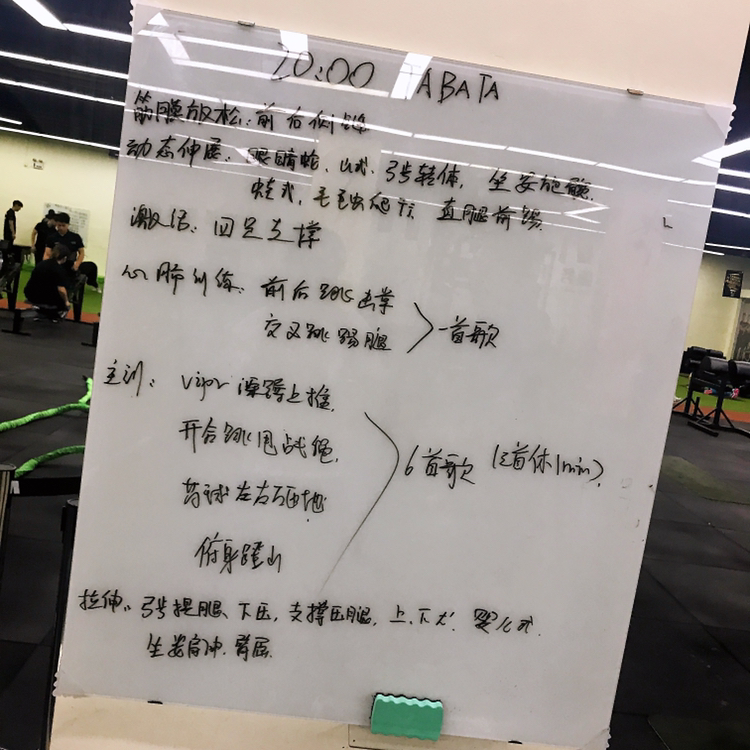 20:00 TABATA
筋膜放松:前 后 侧 链
动态伸展:眼镜蛇、山式、弓步转体,坐姿抱腿
蛙式,毛毛虫爬行,直腿前踢
激活:四足支撑
心肺训练:前后跳击掌
交叉跳踢腿
一首歌
主训:vipr 深蹲上推
开合跳甩战绳
药球左右砸地
俯身登山
6首歌 (2首休1min)
拉伸:弓步提腿、下压,支撑压腿,上、下犬,婴儿式
坐姿肩